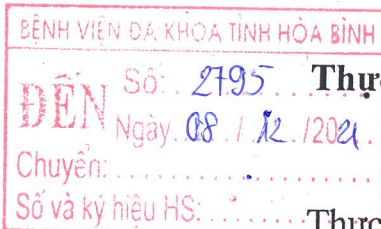 BỆNH VIỆN ĐA KHOA TỈNH HÒA BÌNH
ĐẾN
Số: 2795
Ngày 08 / 12 /2021
Chuyển:
Số và ký hiệu HS:
Thực